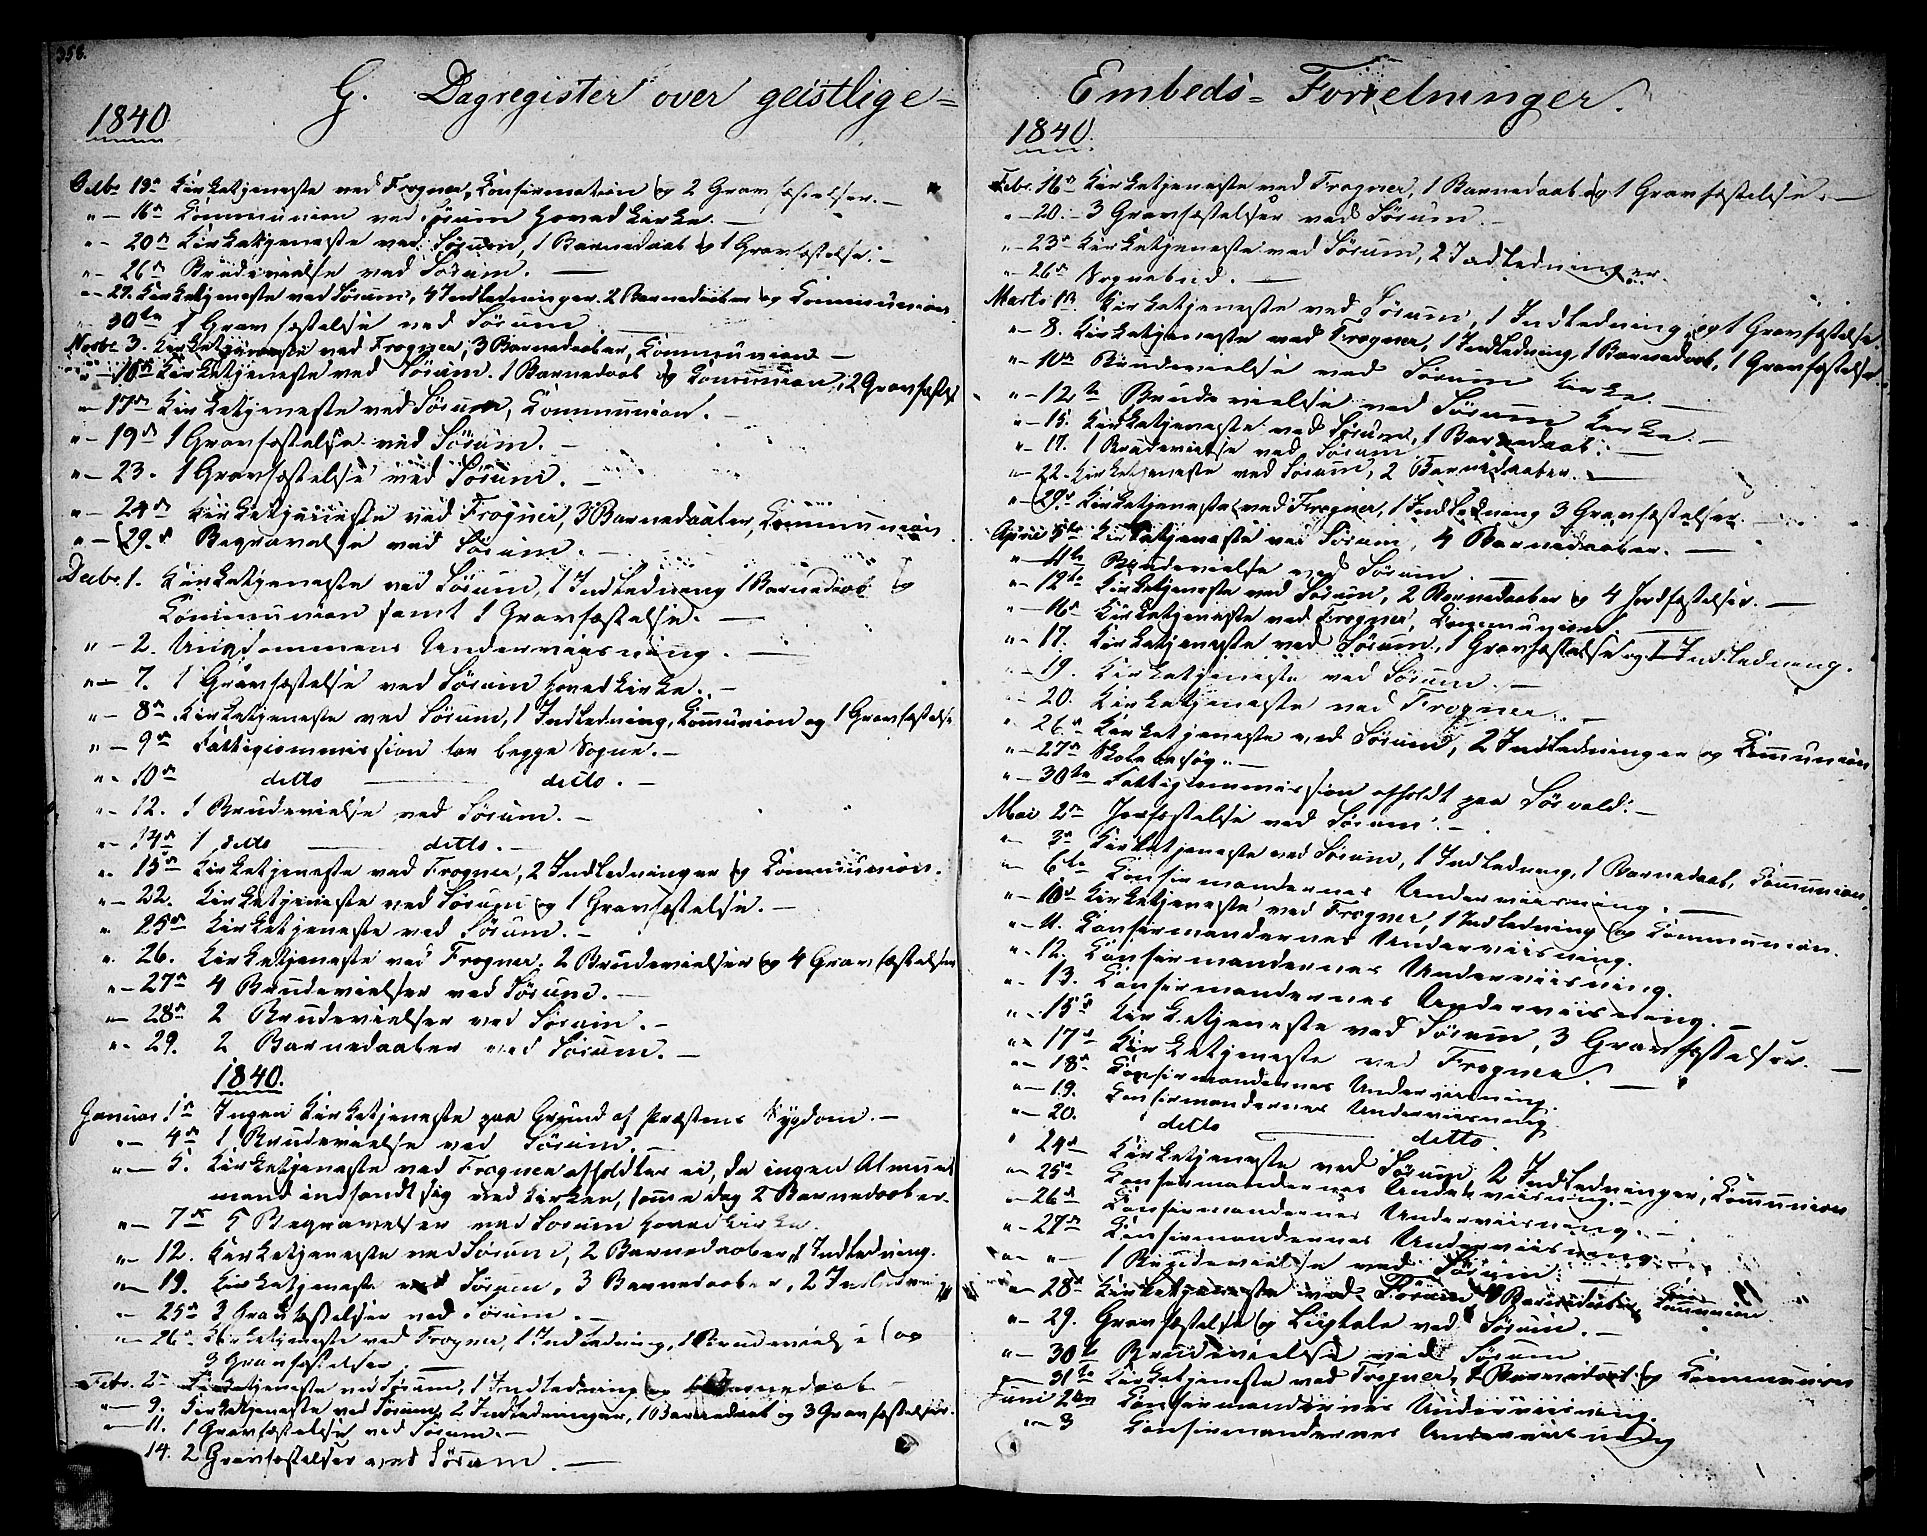 358.
G. Dagregister over geistlige=
1840
Octbr 13de Kirketjeneste ved Frogner, Confirmation og 2 Gravfæstelser. —
" — 16de Communion ved Sørum Hovedkirke. —
" — 20de Kirketjeneste ved Sørum, 1 Barnedaab og 1 Gravfæstelse. —
" — 26de Brudevielse ved Sørum. —
" — 27. Kirketjeneste ved Sørum, 4 Indledninger. 2 Barnedaaber og Communion.
" 30te 1 Gravfæstelse ved Sørum
Novbr 3. Kirketjeneste ved Frogner, 3 Barnedaaber, Communion —
" — 10de Kirketjeneste ved Sørum. 1 Barnedaab og Communion, 2 Gravfæstels
" — 17de Kirketjeneste ved Sørum, Communion. —
" — 19de 1 Gravfæstelse ved Sørum. —
" — 23. 1 Gravfæstelse ved Sørum. —
" — 24de Kirketjeneste ved Frogner, 3 Barnedaaber, Communion
" — 29de Begravelse ved Sørum. —
Decbr. 1. Kirketjeneste ved Sørum, 1 Indledning 1 Barnedaab og
Communion samt 1 Gravfæstelse. —
" — 2. Ungdommens Underviisning. —
" — 7. 1 Gravfæstelse ved Sørum Hovedkirke. —
" — 8de Kirketjeneste ved Sørum, 1 Indledning, Communion og 1 Gravfæstelse
" — 9de Fattigcommission for begge Sogne. —
" — 10de ditto — ditto. —
" — 12. 1 Brudevielse ved Sørum. —
" — 14de 1 ditto — ditto. —
" — 15de Kirketjeneste ved Frogner, 2 Indledninger og Communion.
" — 22. Kirketjeneste ved Sørum og 1 Gravfæstelse. —
" 25de Kirketjeneste ved Sørum. —
" 26. Kirketjeneste ved Frogner. 2 Brudevielser og 4 Gravfæstelser
" — 27de 4 Brudevielser ved Sørum. —
" — 28de 2 Brudevielser ved Sørum. —
" — 29. 2 Barnedaaber ved Sørum. —
1840.
Januar 1de Ingen Kirketjeneste paa Grund af Præstens Sygdom. —
" — 4de 1 Brudevielse ved Sørum. —
" — 5. Kirketjeneste ved Frogner afholdtes ei, da ingen Almues
mand indfandt sig ved Kirken, samme dag 2 Barnedaaber.
" — 7de 5 Begravelser ved Sørum Hovedkirke.
" — 12. Kirketjeneste ved Sørum, 2 Barnedaaber, 1 Indledning.
" — 19. Kirketjeneste ved Sørum, 3 Barnedaaber, 2 Indledning
" — 25de 3 Gravfæstelser ved Sørum. —
" — 26de Kirketjeneste ved Frogner, 1 Indledning, 1 Brudevielse og
3 Gravfæstelser. —
Febr. 2de Kirketjeneste ved Sørum, 1 Indledning og Barnedaab —
" — 9. Kirketjeneste ved Sørum, 2 Indledninger, 1 Barnedaab og 3 Gravfæstelser.
" — 11. 1 Gravfæstelse ved Sørum. —
14. 2 Gravfæstelser ved Sørum. —
Embeds= Forretninger.
1840.
Febr. 16de Kirketjeneste ved Frogner, 1 Barnedaab og 1 Gravfæstelse. —
" — 20. — 3 Gravfæstelser ved Sørum. —
" — 23de Kirketjeneste ved Sørum, 2 Indledninger.
" — 26de Sognebud. —
Marts 1de Kirketjeneste ved Sørum, 1 Indledning, og 1 Gravfæstelse.
" — 8. Kirketjeneste ved Frogner, 1 Indledning, 1 Barnedaab, 1 Gravfæstelse.
" — 10de Brudevielse ved Sørum Kirke. —
" — 12te Brudevielse ved Sørum Kirke. —
" — 15. Kirketjeneste ved Sørum, 1 Barnedaab. —
" — 17. 1 Brudevielse ved Sørum
" — 22. Kirketjeneste ved Sørum, 2 Barnedaaber. —
" — 29de Kirketjeneste ved Frogner, 1 Indledning 3 Gravfæstelser. —
April 5te Kirketjeneste ved Sørum, 4 Barnedaaber. —
" — 11te Brudevielse ved Sørum. —
" — 12te Kirketjeneste ved Sørum, 2 Barnedaaber og 4 Jordfæstelser. —
" — 16de Kirketjeneste ved Frogner, Communion
" — 17. Kirketjeneste ved Sørum, 1 Gravfæstelse og 1 Indledning.
" — 19. Kirketjeneste ved Sørum. —
" — 20. Kirketjeneste ved Frogner. —
" 26de Kirketjeneste ved Sørum, 2 Indledninger og Communion
" — 27de Skolebesøg. —
" — 30te Fattigcommission afholdt paa Sørvald. —
Mai 2de Jorfæstelse ved Sørum. —
" — 3de Kirketjeneste ved Sørum, 1 Indledning, 1 Barnedaab, Communion.
" — 6te Confirmandernes Underviisning. —
" — 10de Kirketjeneste ved Frogner, 1 Indledning og Communion.
" — 11. Confirmandernes Underviisning.
" — 12. Confirmandernes Underviisning.
" — 13. Confirmandernes Underviisning. —
" — 15de Kirketjeneste ved Sørum, 3 Gravfæstelser. —
" — 17de Kirketjeneste ved Frogner. —
" — 18de Confirmandernes Underviisning.
" — 19. Confirmandernes Underviisning
" — 20. ditto — ditto.
" 24de Kirketjeneste ved Sørum, 2 Indledninger, Communion
" — 25de Confirmandernes Underviisning. —
" — 26de Confirmandernes Underviisning. —
" — 27de Confirmandernes Underviisning. —
" — " — 1 Brudevielse ved Sørum. —
" — 28de Kirketjeneste ved Sørum Barnedaab Communion
" — 29. Gravfæstelse og Liigtale ved Sørum. —
" — 30te Brudevielse ved Sørum
" — 31te Kirketjeneste ved Frogner, Barnedaab og Communion
Juni 2den Confirmandernes Underviisning.
" — 3 Confirmandernes Underviisning